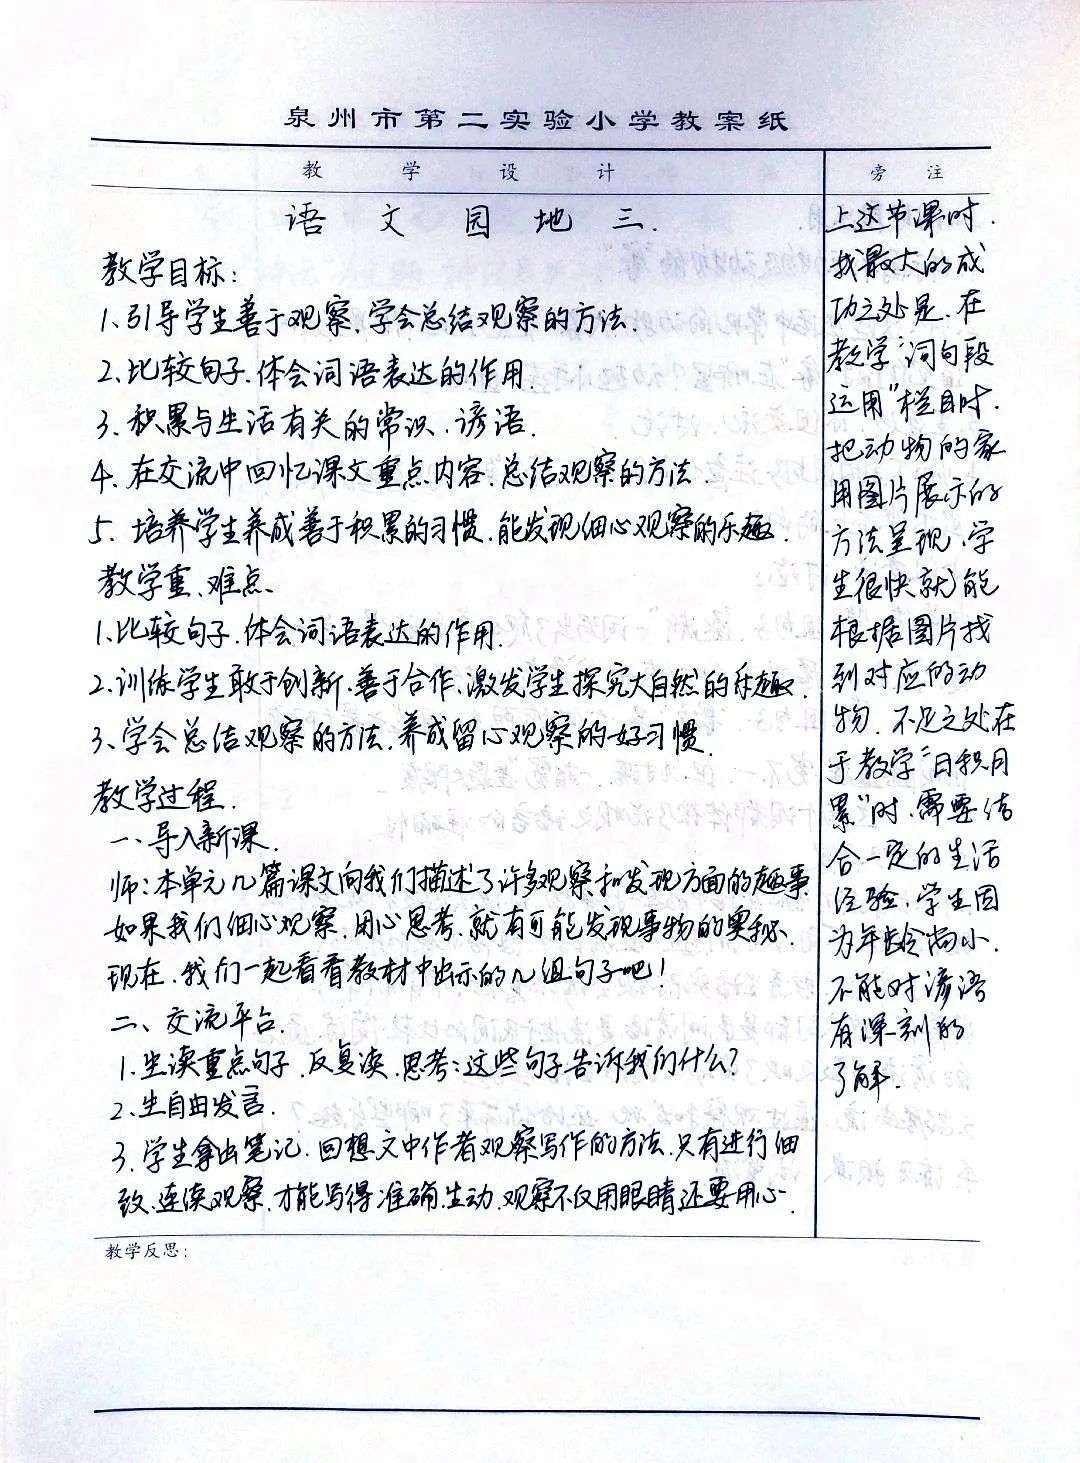 泉州市第二实验小学教案纸
教学设计
旁注
语文园地三.
教学目标:
1、引导学生善于观察,学会总结观察的方法.
2、比较句子,体会词语表达的作用.
3、积累与生活有关的常识、谚语.
4、在交流中回忆课文重点内容,总结观察的方法.
5、培养学生养成善于积累的习惯,能发现细心观察的乐趣.
教学重、难点、
1、比较句子,体会词语表达的作用.
2、训练学生敢于创新、善于合作、激发学生探究大自然的乐趣.
3、学会总结观察的方法,养成留心观察的好习惯.
教学过程.
一、导入新课.
师:本单元几篇课文向我们描述了许多观察和发现方面的趣事.
如果我们细心观察,用心思考,就有可能发现事物的奥秘.
现在,我们一起看看教材中出示的几组句子吧!
二、交流平台.
1.生读重点句子,反复读,思考:这些句子告诉我们什么?
2.生自由发言.
3.学生拿出笔记,回想文中作者观察写作的方法,只有进行细
致、连续观察,才能写得准确、生动,观察不仅用眼睛还要用心.
教学反思:
上这节课时,
我最大的成
功之处是,在
教学“词句段
运用”栏目时,
把动物的家
用图片展示的
方法呈现,学
生很快就能
根据图片找
到对应的动
物.不足之处在
于教学“日积月
累”时,需要结
合一定的生活
经验,学生因
为年龄尚小,
不能对谚语
有深刻的
了解.